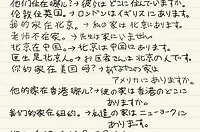 他们住在哪儿？→彼らはどこに住んでいますか。
伦敦在英国。→ロンドンはイギリスにあります。
我的家在北京。→私の家は北京にあります。
老师不在家。→先生は家にいません。
北京在中国。→北京は中国にあります。
医生是北京人。→お医者さんは北京の人です。
你的家在美国吗？→あなたの家は
アメリカにありますか。
他的家在香港哪儿？→彼の家は香港のどこに
ありますか。
我们的家在纽约。→私達の家はニューヨークに
あります。